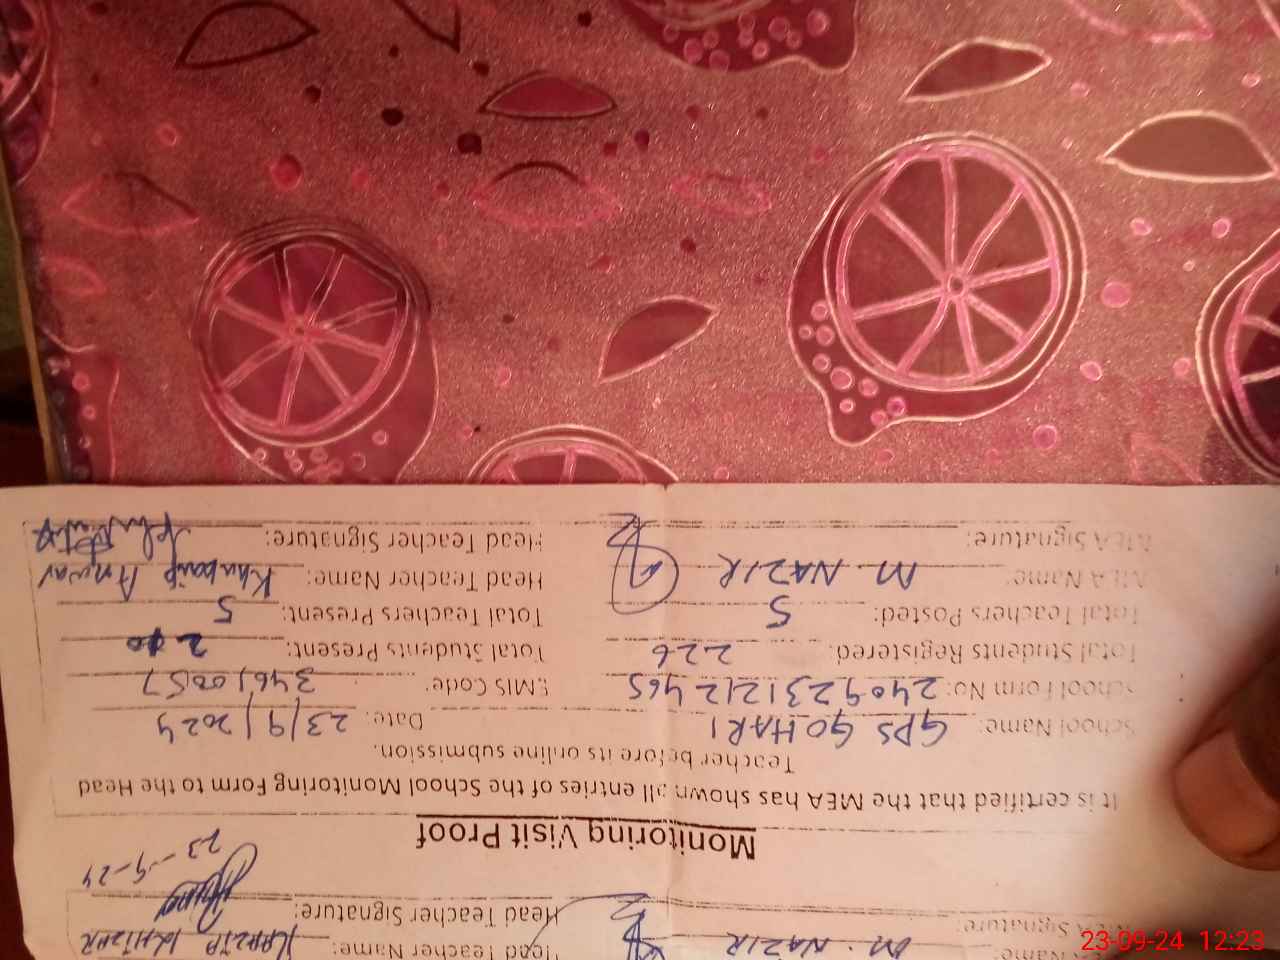 MEA Name: M. NAZIR Head Teacher Name:
MEA Signature: Head Teacher Signature:
23-9-24
Monitoring Visit Proof
It is certified that the MEA has shown all entries of the School Monitoring Form to the Head
Teacher before its online submission.
School Name: GPS GOHARI Date: 23/9/2024
School Form No: 2409231212465 EMIS Code: 34610057
Total Students Registered: 226 Total Students Present:
Total Teachers Posted: 5 Total Teachers Present: 5
MEA Name: M NAZIR Head Teacher Name: Anwar
MEA Signature: Head Teacher Signature:
23-09-24 12:23